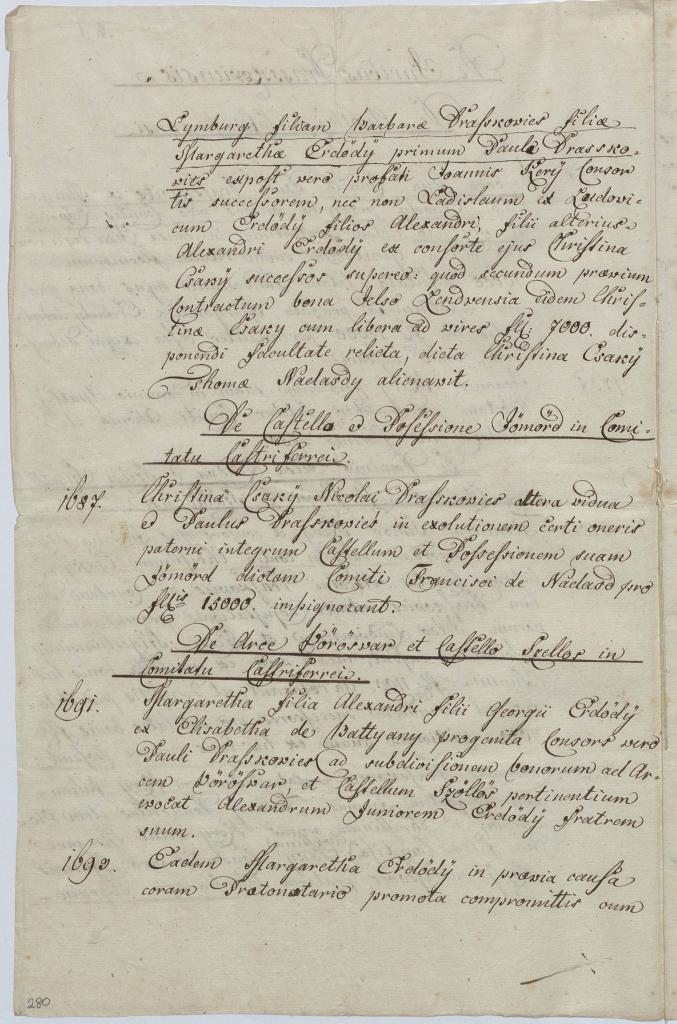 Lymburg filiam Barbaræ Drasskovics filiæ
Margarethæ Erdődÿ primum Pauli Drassko-
vics expost vero præfati Joannis Kerÿ Consor
tis successorem, nec non Ladislaum et Ludovi-
cum Erdődÿ filios Alexandri, filii alterius
Alexandri Erdődÿ ex consorte ejus Christina
Csakÿ successos supereo: quod secundum præxium
Contractum bona Felsö Lendvensia eidem Chris-
tinæ Csaky cum libera ad vires fl: 7000. dis-
ponendi facultate relicta, dicta Christina Csakÿ
Thomæ Nadasdy alienavit.
De Castello et Possessione Jömörd in Comi-
tatu Castriferrei.
1687. Christina Csakÿ Nicolai Drasskovics altera vidua
et Paulus Drasskovics in exolutionem certi oneris
paterni integrum Castellum et Possessionem suam
Jömörd dictam Comiti Francisci de Nadasd pro
flnis 15000. impignorant.
De Arce Vörösvar et Castello Szellos in
Comitatu Castriferrei.
1691. Margaretha filia Alexandri filii Georgii Erdődÿ
ex Elisabetha de Battyany progenita Consors vero
Pauli Drasskovics ad subdivisionem bonorum ad Ar-
cem Vörösvar, et Castellum Szöllös pertinentium
evocat Alexandrum Juniorem Erdődÿ fratrem
suum.
1693. Eadem Margaretha Erdődÿ in prævia causa
coram Protonotario promota compromittit cum
280